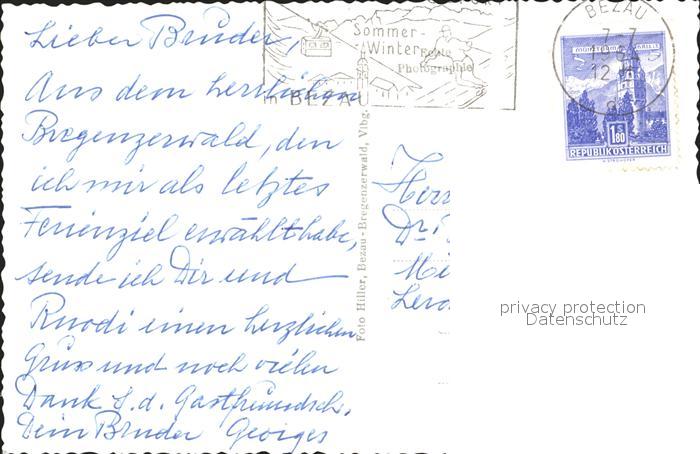 Lieber Bruder,
Aus dem herrlichen
Bregenzerwald, den
ich mir als letztes
Ferienziel erwählt habe,
sende ich Dir und
Ruodi einen herzlichen
Gruss und noch vielen
Dank f. d. Gastfreundsch.
Dein Bruder Georges
Sommer-
Winter
Echte
Photographie
BEZAU
Foto Hiller, Bezau-Bregenzerwald, Vlbg.
BEZAU
7-7
12.
S
1.80
REPUBLIK ÖSTERREICH
Herr
Dr.
Mi
privacy protection
Datenschutz